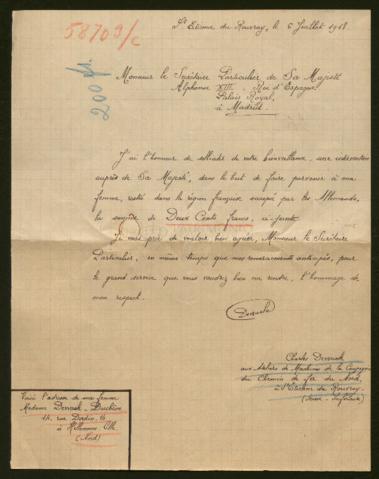 58703/c
200 fr.
St Etienne du Rouvray, le 6 Juillet 1918.
Monsieur le Secrétaire Particulier de Sa Majesté
Alphonse XIII. Roi d'Espagne
Palais Royal,
à Madrid
J'ai l'honneur de solliciter de votre bienveillance, une intervention
auprès de Sa Majesté, dans le but de faire parvenir à ma
femme, restée dans la région française occupée par les Allemands,
la somme de Deux Cents francs, ci-joints.
Je vous prie de vouloir bien agréer, Monsieur le Secrétaire
Particulier, en même temps que mes remerciements anticipés, pour
le grand service que vous voudrez bien me rendre, l'hommage de
mon respect.
Charles
aux Ateliers de Machines de la Compagnie
du Chemin de fer du Nord,
à St Etienne du Rouvray
(Seine-Inférieure)
Voici l'adresse de ma femme
Madame
14, rue
à Ville
(Nord)